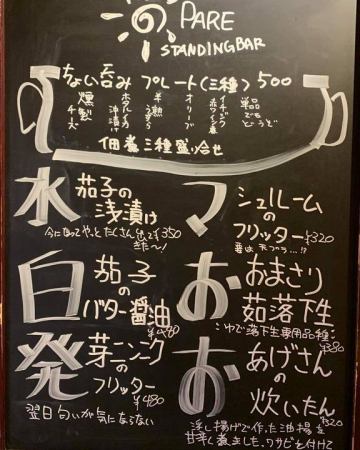 PARE
STANDINGBAR
ちょい呑み プレート(三種)500
燻製チーズ
ホタルイカ沖漬け
半熟うずら
オリーブ
イチジク赤ワイン煮
単品でもどうぞ
佃煮三種盛り合せ
水茄子の
浅漬け
¥350
マッシュルーム
の
フリッター
¥320
要は天プラ…!?
白茄子
の
バター醤油
¥480
おおまさり
茹落花生
ゆで落花生専用品種。
¥380
発芽ニンニク
の
フリッター
¥480
翌日匂いが気にならない
おあげさん
の
炊いたん
¥320
浮し揚げで作った油揚を
甘辛く煮ました、ワサビを付けて